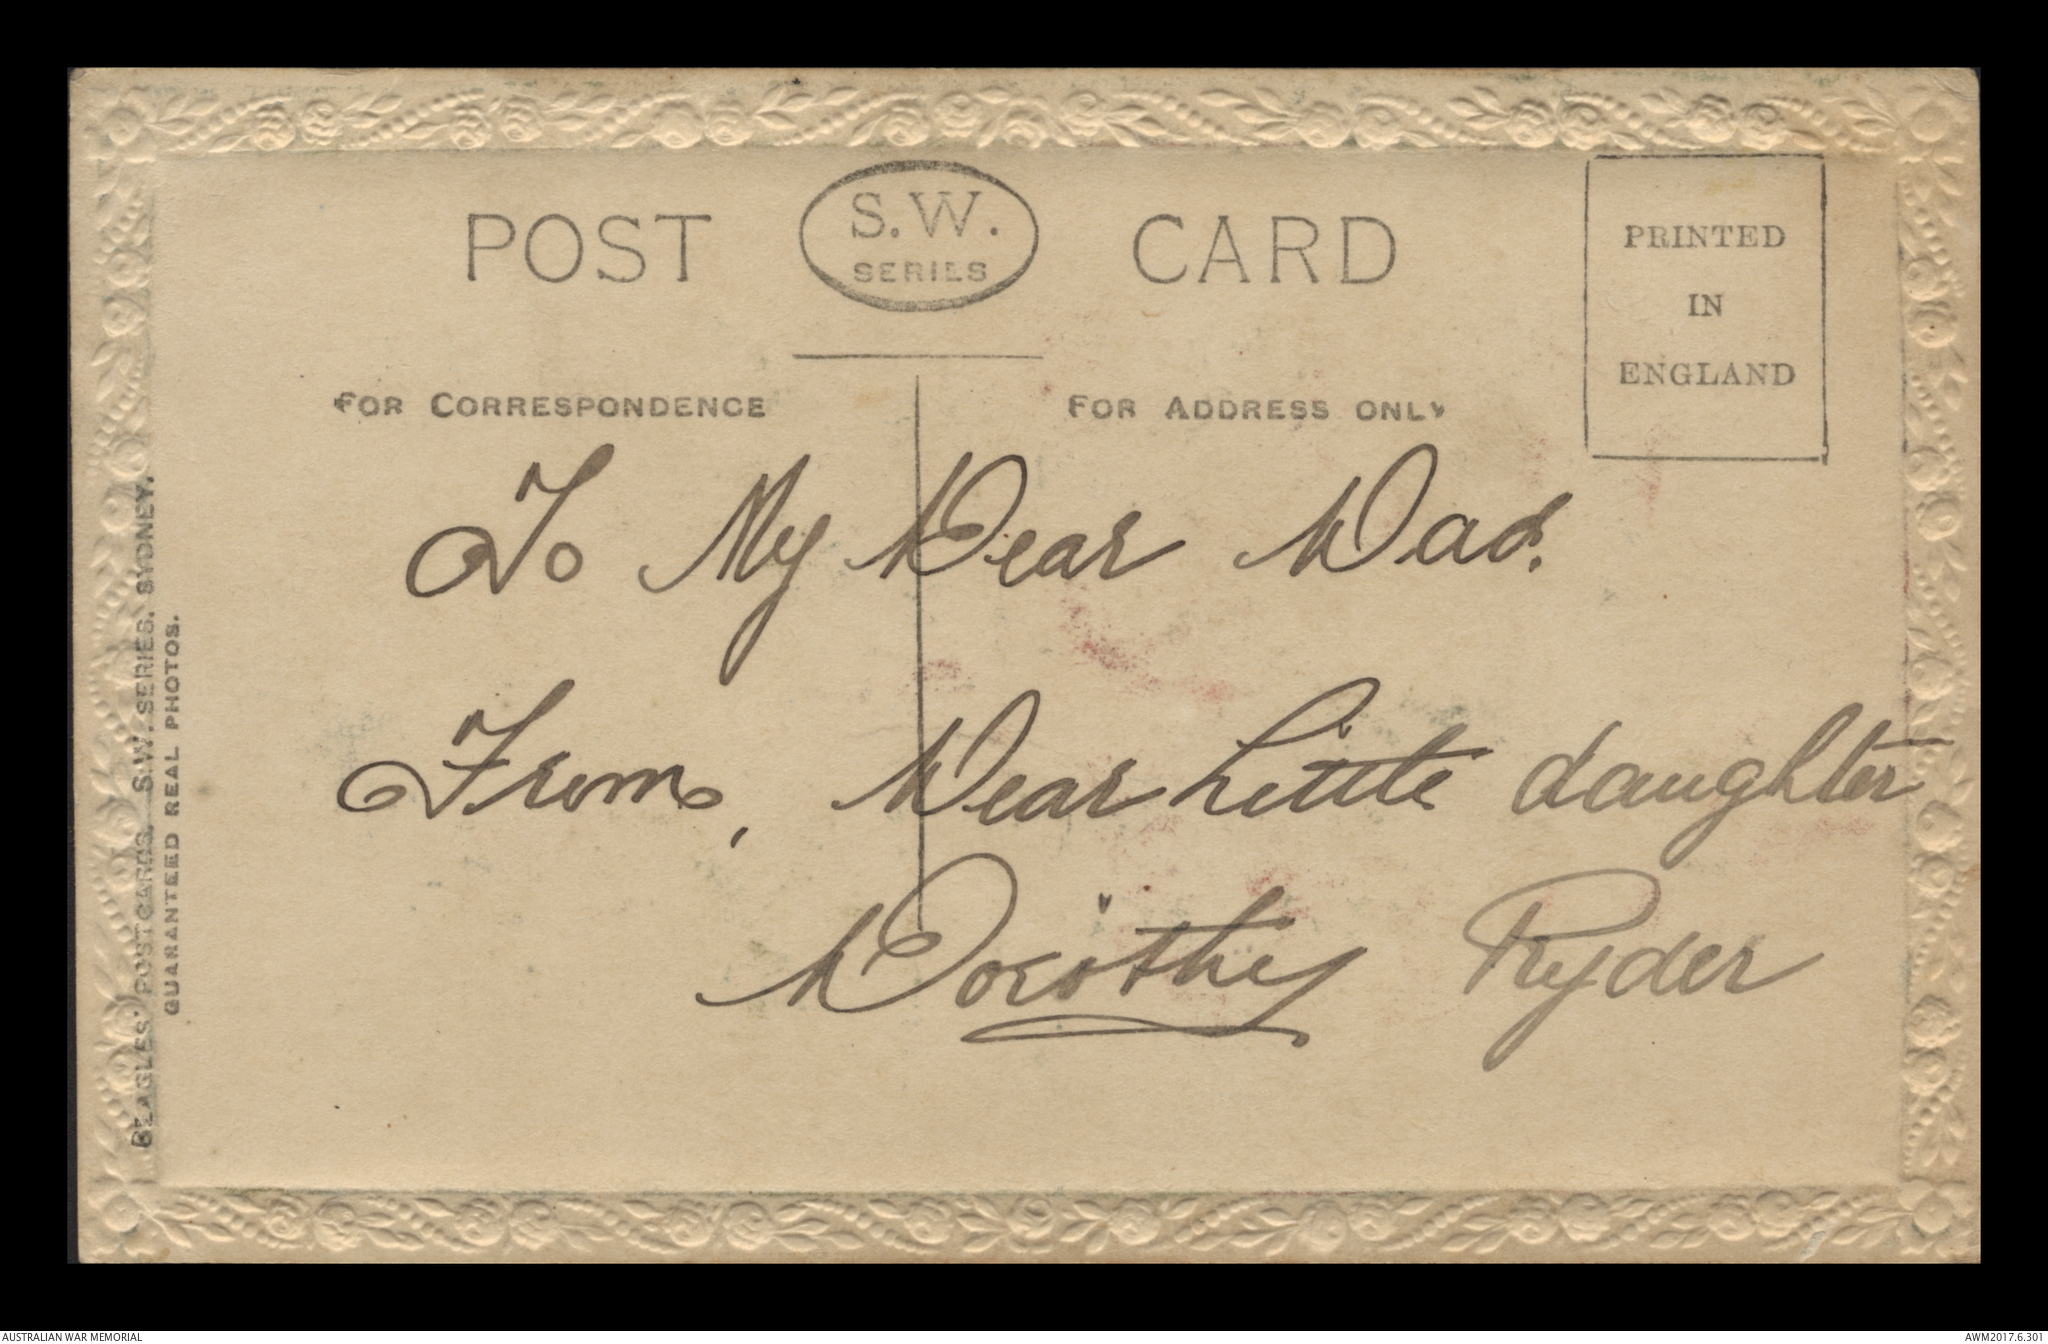 POST S.W. CARD
SERIES
PRINTED
IN
ENGLAND
FOR CORRESPONDENCE
FOR ADDRESS ONLY
To My Dear Dad.
From, Dear Little daughter
Dorothy Ryder
BEAGLES' POSTCARDS. S.W. SERIES. SYDNEY.
GUARANTEED REAL PHOTOS.
AUSTRALIAN WAR MEMORIAL
AWM2017.6.301